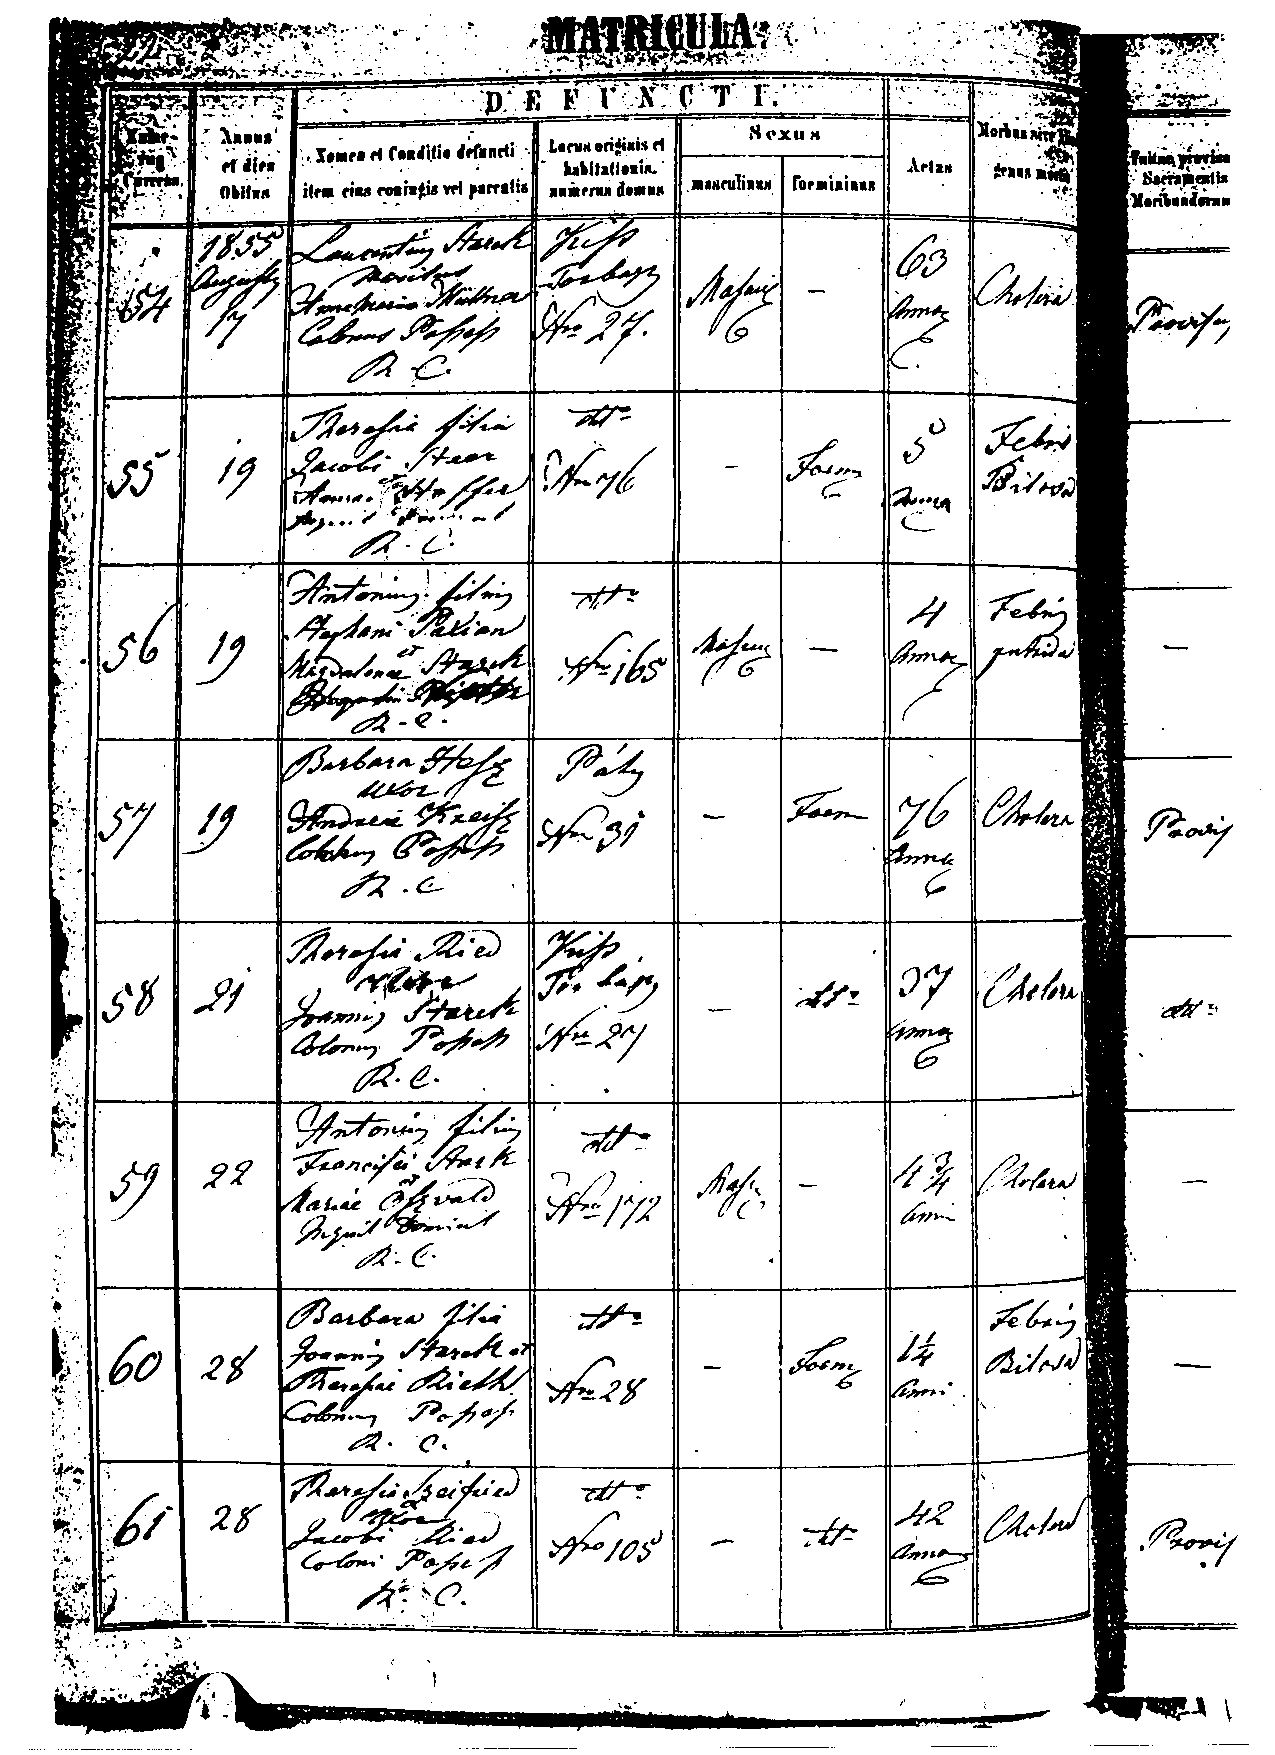 22
MATRICULA
DEFUNCTI.
Nume-
rus
Currens
Annus
et dies
Obitus
Nomen et Conditio defuncti
item eius coniugis vel parentis
Locus originis et
habitationis,
numerus domus
Sexus
masculinus
foemininus
Aetas
Morbus sive
genus mortis
provisus
Sacramentis
Moribundorum
54
1855
Augusty
17
Laurentius Starck
maritus
Anna Maria
Colonus Possess
R. C.
Kiss
Torbagy
Nro 27.
Mascul
—
63
Annor
Cholera
Provisus
55
19
Theresia filia
Jacobi Staar
et
Annae Hoffer
R. C.
dtto
Nro 76
—
Foem
5
Anno
Febris
Biliosa
56
19
Antonius filius
Stephani Paxian
et
Magdalenae Starck
R. C.
dtto
Nro 165
Mascul
—
4
Annor
Febris
putrida
—
57
19
Barbara Hesz
uxor
Andreae Kreisz
Possess
R. C.
Páty
Nro 31
—
Foem
76
Anno
Cholera
Provis
58
21
Theresia Ried
Joannis Starck
Colonus Possess
R. C.
Kiss
Torbágy
Nro 27
—
dtto
37
Anno
Cholera
dtto
59
22
Antonius filius
Francisci Stark
et
Mariae Oszvald
Inquil Domicil
R. C.
dtto
Nro 172
Mascul
—
4 3/4
Anni
Cholera
—
60
28
Barbara filia
Joannis Starck et
Theresiae Rieth
Colonus Possess
R. C.
dtto
Nro 28
—
Foem
1 1/4
Anni
Febris
Biliosa
—
61
28
Theresia Szeifried
uxor
Jacobi Ried
Coloni Possess
R. C.
dtto
Nro 105
—
dtto
42
Annor
Cholera
Provis